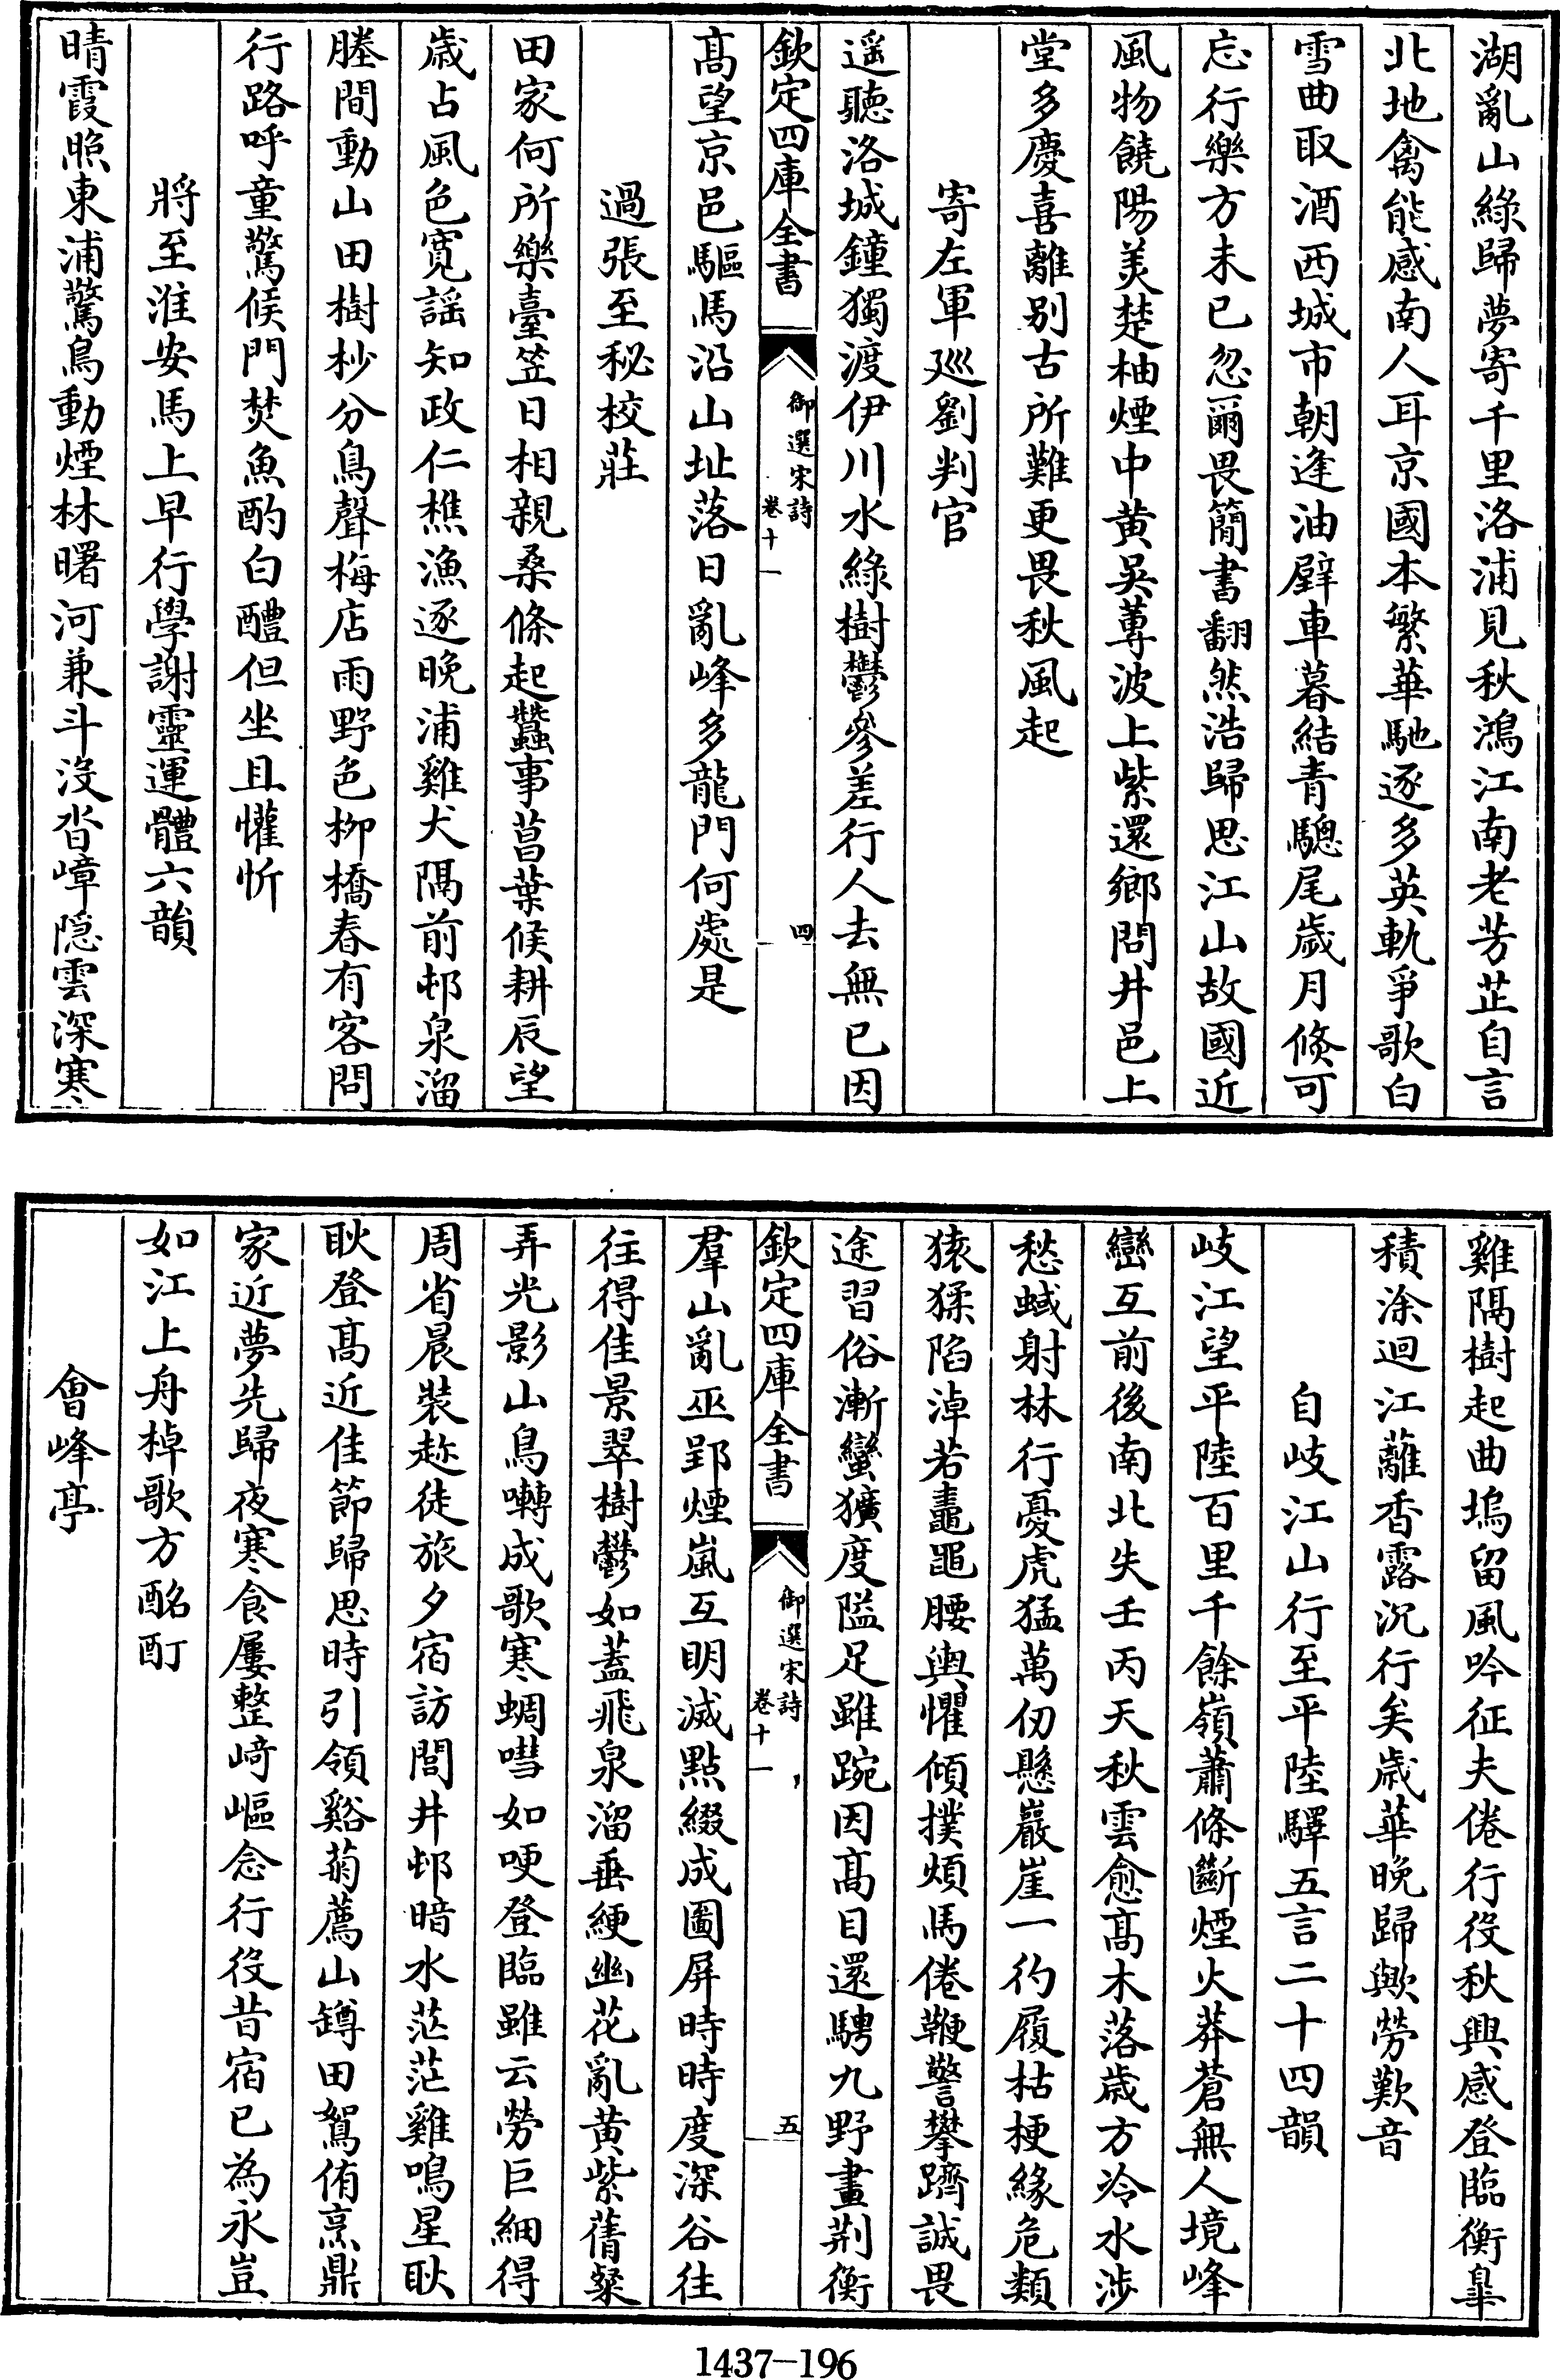 湖亂山綠歸夢寄千里洛浦見秋鴻江南老芳芷自言
北地禽能感南人耳京國本繁華馳逐多英軌爭歌白
雪曲取酒西城市朝逢油壁車暮結青驄尾歲月倏可
忘行樂方未已忽爾畏簡書翻然浩歸思江山故國近
風物饒陽美楚柚煙中黄吳蓴波上紫還鄉問井邑上
堂多慶喜離别古所難更畏秋風起
寄左軍廵劉判官
遥聽洛城鐘獨渡伊川水綠樹鬱參差行人去無已因
欽定四庫全書
御選宋詩
卷十一
四
髙望京邑驅馬沿山址落日亂峰多龍門何處是
過張至秘校莊
田家何所樂臺笠日相親桑條起蠶事菖葉候耕辰望
歳占風色寛謡知政仁樵漁逐晚浦雞犬隔前邨泉溜
塍間動山田樹杪分鳥聲梅店雨野色栁橋春有客問
行路呼童驚候門焚魚酌白醴但坐且懽忻
將至淮安馬上早行學謝靈運體六韻
晴霞煦東浦驚鳥動煙林曙河兼斗沒沓嶂隠雲深寒
雞隔樹起曲塢留風吟征夫倦行役秋興感登臨衡臯
積涂迴江蘺香露沉行矣歳華晚歸歟勞歎音
自岐江山行至平陸驛五言二十四韻
岐江望平陸百里千餘嶺蕭條斷煙火莽蒼無人境峰
巒互前後南北失壬丙天秋雲愈髙木落歳方冷水涉
愁蜮射林行憂虎猛萬仞懸巖崖一彴履枯梗緣危類
猿猱陷淖若鼃黽腰輿懼傾撲煩馬倦鞭警攀躋誠畏
途習俗漸蠻獷度隘足雖踠因髙目還騁九野畫荆衡
欽定四庫全書
御選宋詩
卷十一
五
羣山亂巫郢煙嵐互明滅點綴成圖屏時時度深谷往
往得佳景翠樹鬱如蓋飛泉溜垂綆幽花亂黄紫蒨粲
弄光影山鳥囀成歌寒蜩嘒如哽登臨雖云勞巨細得
周省晨裝趂徒旅夕宿訪閭井邨暗水茫茫雞鳴星耿
耿登髙近佳節歸思時引領谿菊薦山罇田鴽侑烹鼎
家近夢先歸夜寒食屢整﨑嶇念行役昔宿已為永豈
如江上舟棹歌方酩酊
會峰亭
1437-196